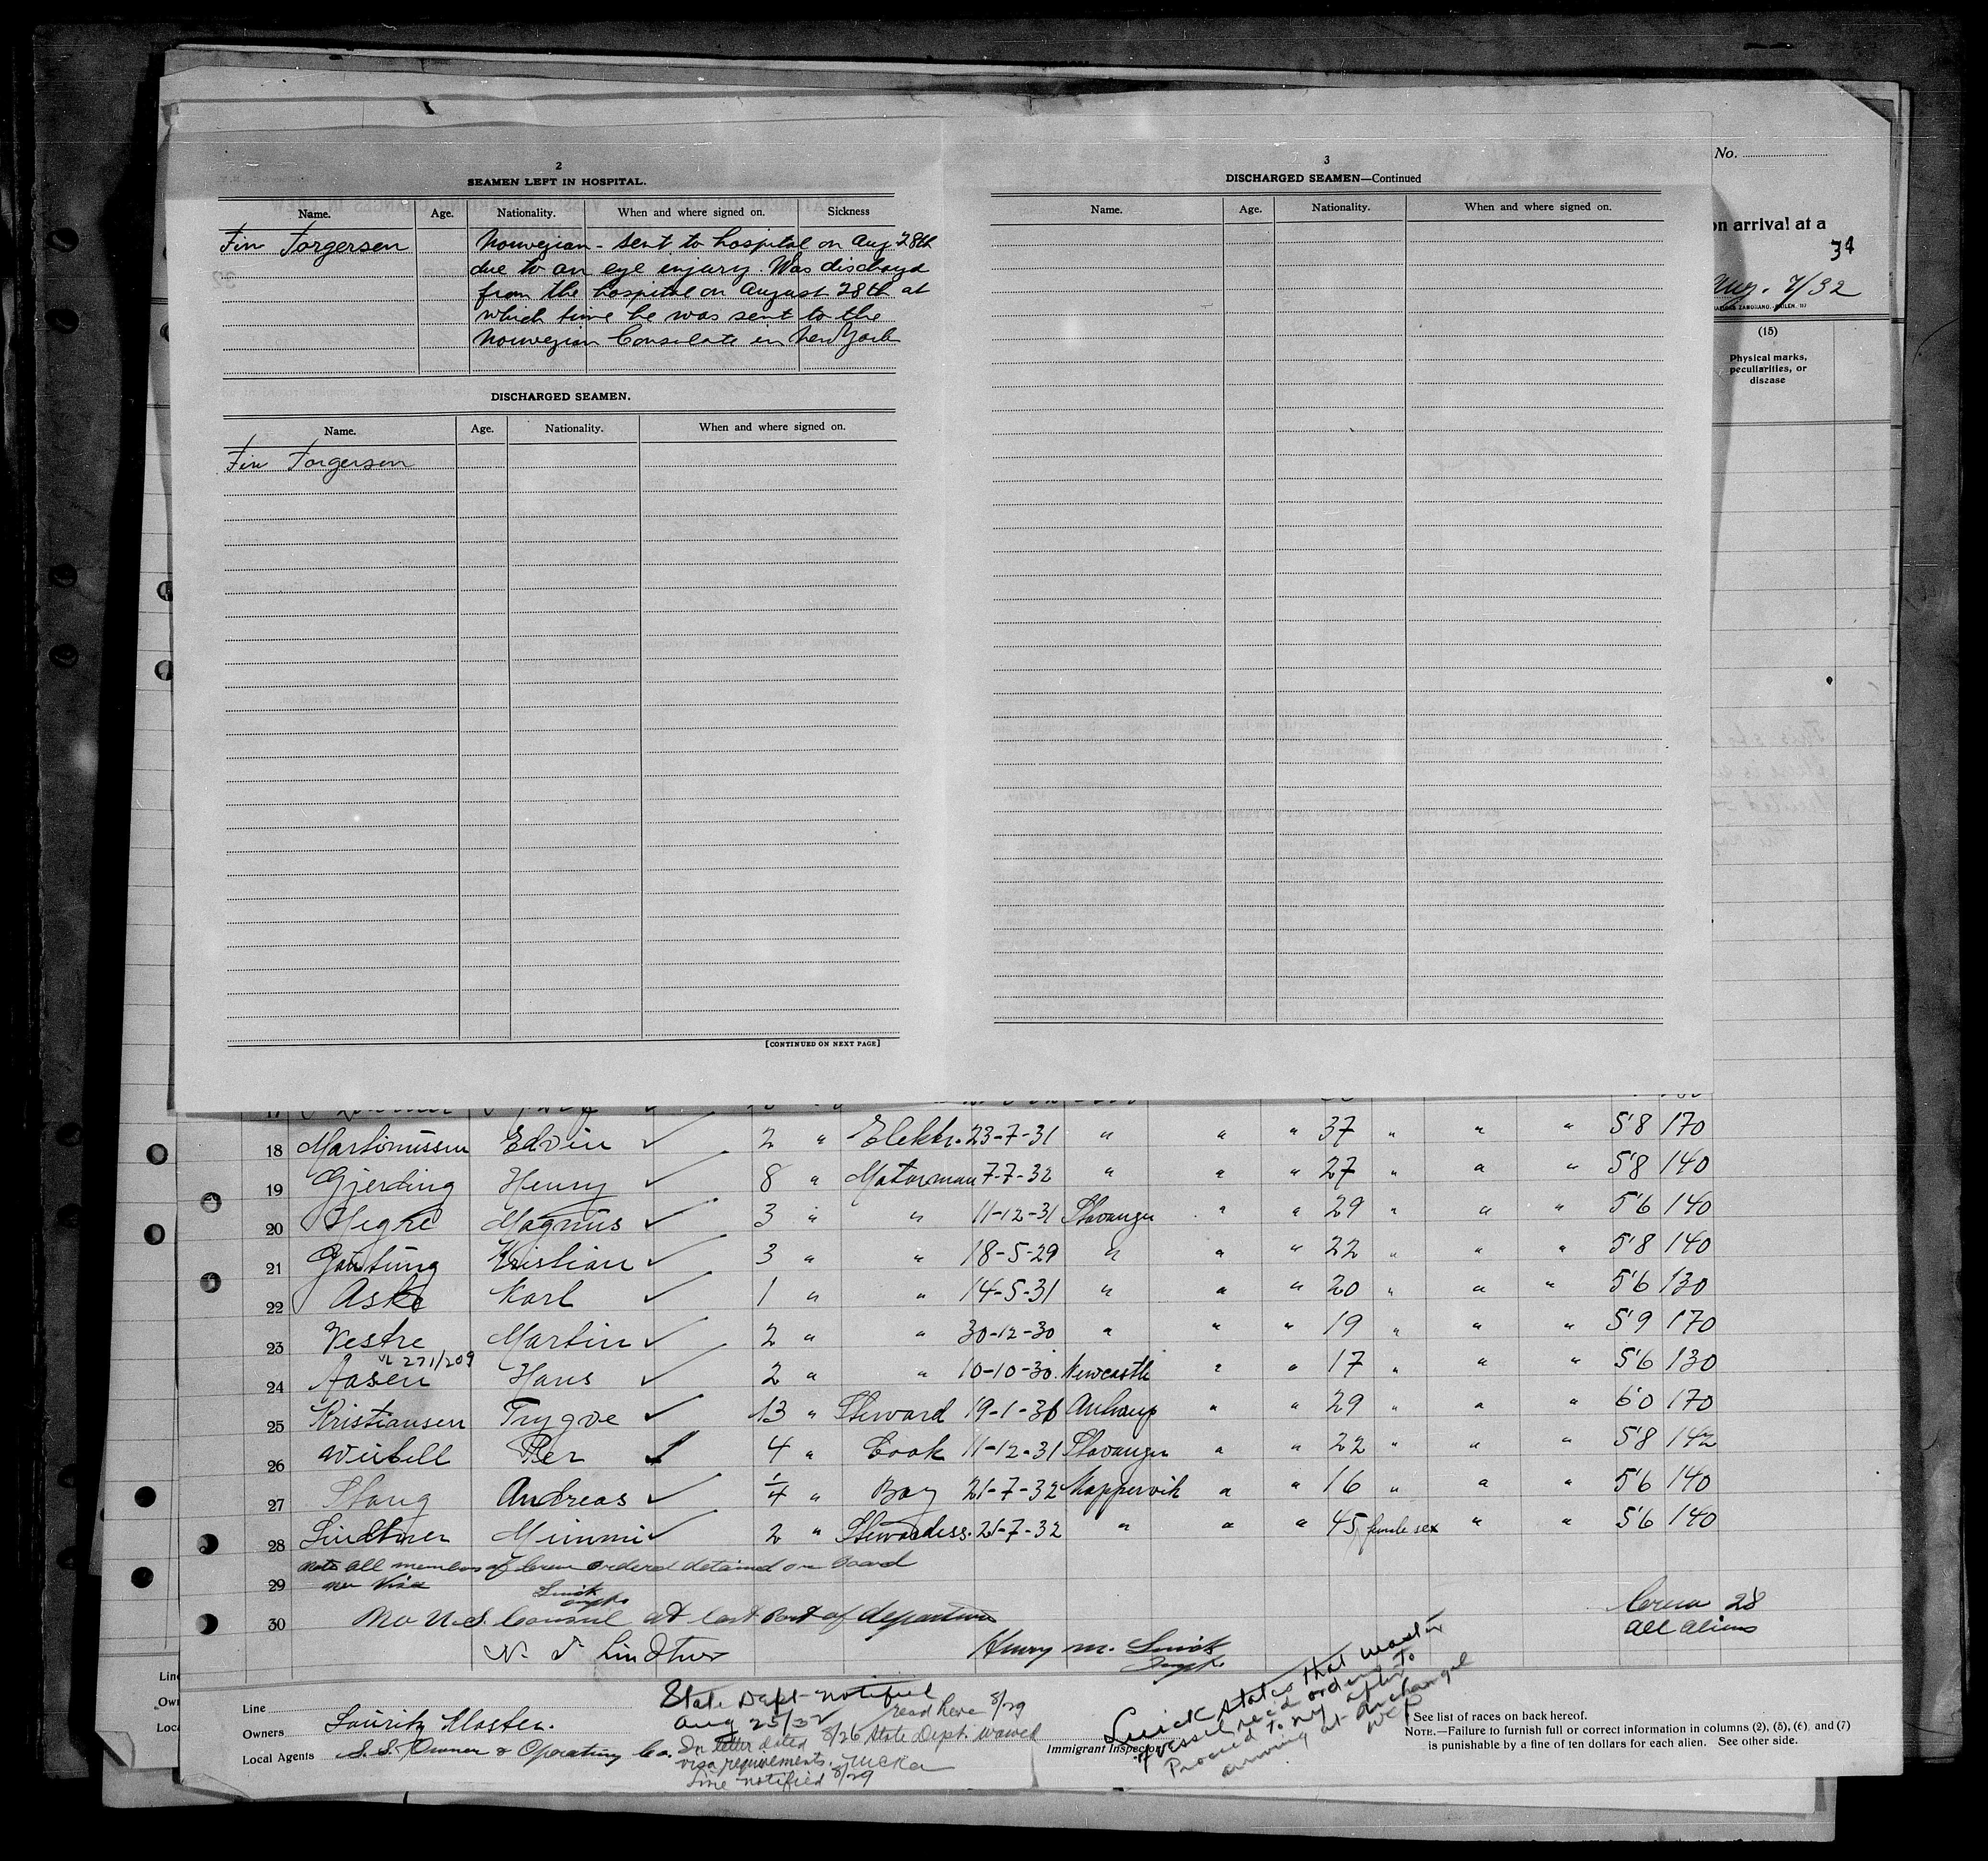 2
SEAMEN LEFT IN HOSPITAL.
Name. Age. Nationality. When and where signed on. Sickness
Fin Torgersen Norwegian - sent to hospital on Aug 28th
due to an eye injury. Was dischargd
from the hospital on August 28th at
which time he was sent to the
Norwegian Consulate in New York
DISCHARGED SEAMEN.
Name. Age. Nationality. When and where signed on.
Fin Torgersen
[CONTINUED ON NEXT PAGE]
3
DISCHARGED SEAMEN—Continued
Name. Age. Nationality. When and where signed on.
No.
on arrival at a
34
Aug. 7/32
(15)
Physical marks,
peculiarities, or
disease
17
18 Martinussen Edvin ✓ 2 " Elektr. 23-7-31 " " " 37 " " " 5'8 170
19 Gjerding Henry ✓ 8 " Motorman 7-7-32 " " " 27 " " " 5'8 140
20 Hegre Magnus ✓ 3 " " 11-12-31 Stavanger " " 29 " " " 5'6 140
21 Kristian ✓ 3 " " 18-5-29 " " " 22 " " " 5'8 140
22 Aske Karl ✓ 1 " " 14-5-31 " " " 20 " " " 5'6 130
23 Vestre Martin ✓ 2 " " 30-12-30 " " " 19 " " " 5'9 170
271/209
24 Aasen Hans ✓ 2 " " 10-10-30 Newcastle " " 17 " " " 5'6 130
25 Kristiansen Trygve ✓ 13 " Steward 19-1-31 Antwerp " " 29 " " " 6'0 170
26 Per ✓ 4 " Cook 11-12-31 Stavanger " " 22 " " " 5'8 142
27 Stang Andreas ✓ 1/4 " Boy 21-7-32 Koppervik " " 16 " " " 5'6 140
28 Lindtner Mimmi ✓ 2 " Stewardess. 21-7-32 " " " 45 female sex " " 5'6 140
Note all members of crew ordered detained on board
29 no visa
30 No U.S. Consul at last Port of departure
Crew 28
all aliens
N. T. Lindtner
Henry M.
Line
Owners Lauritz Kloster.
Local Agents S.S. Owner & Operating Co.
State Dept notified
Aug 25/32
read here 8/29
In letter dated 8/26 State Dept. waived
visa requirements.
Line notified 8/29
Immigrant Inspector
states that master
of vessel recd orders to
Proceed to NY after
arriving at Archangel
See list of races on back hereof.
NOTE.—Failure to furnish full or correct information in columns (2), (5), (6), and (7)
is punishable by a fine of ten dollars for each alien. See other side.